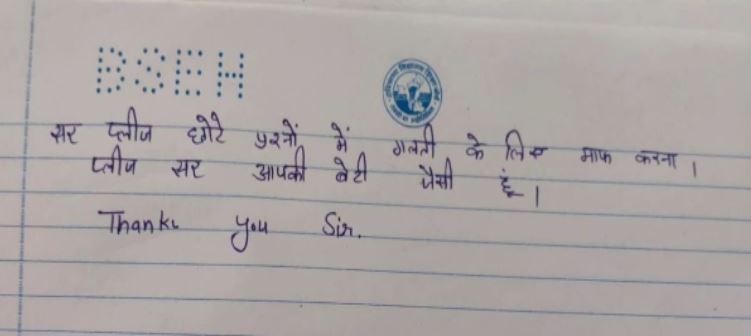 BSEH
सर प्लीज छोटे प्रश्नों में गलती के लिए माफ करना ।
प्लीज सर आपकी बेटी जैसी हूं ।
Thanku you Sir.